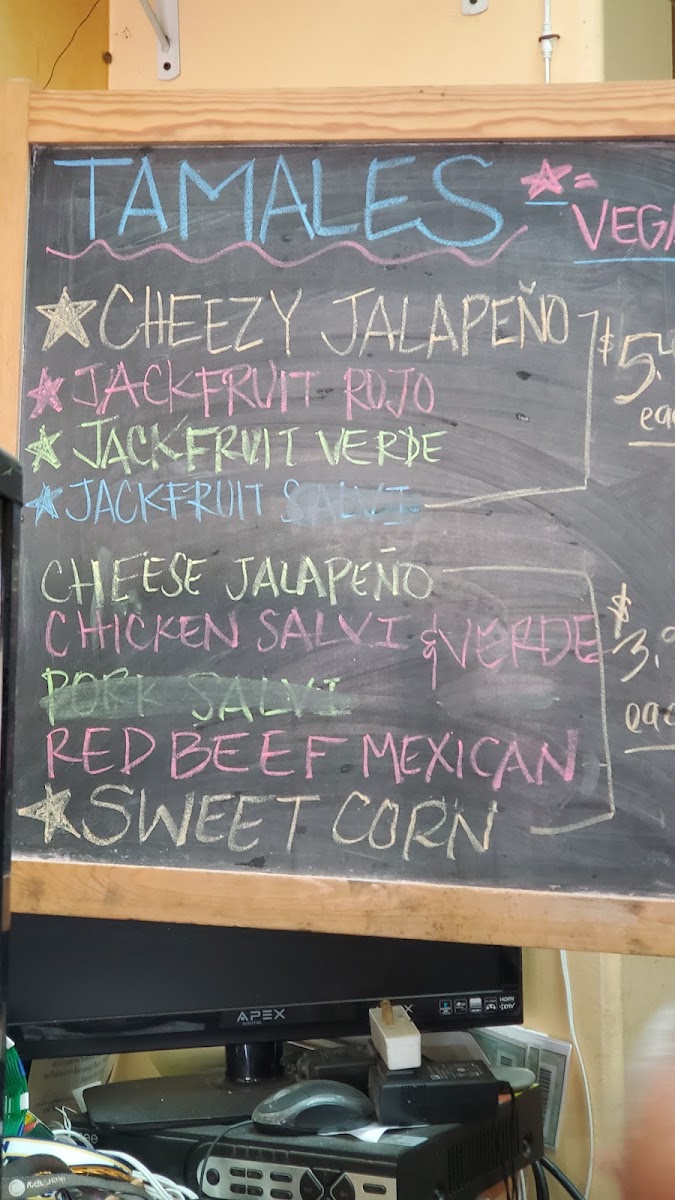 TAMALES
★=
VEGA
★ CHEEZY JALAPEÑO
★ JACKFRUIT ROJO
★ JACKFRUIT VERDE
★ JACKFRUIT SALVI
$5.
eac
CHEESE JALAPEÑO
CHICKEN SALVI & VERDE
PORK SALVI
RED BEEF MEXICAN
★ SWEET CORN
$3.9
eac
APEX
DIGITAL
HDMI